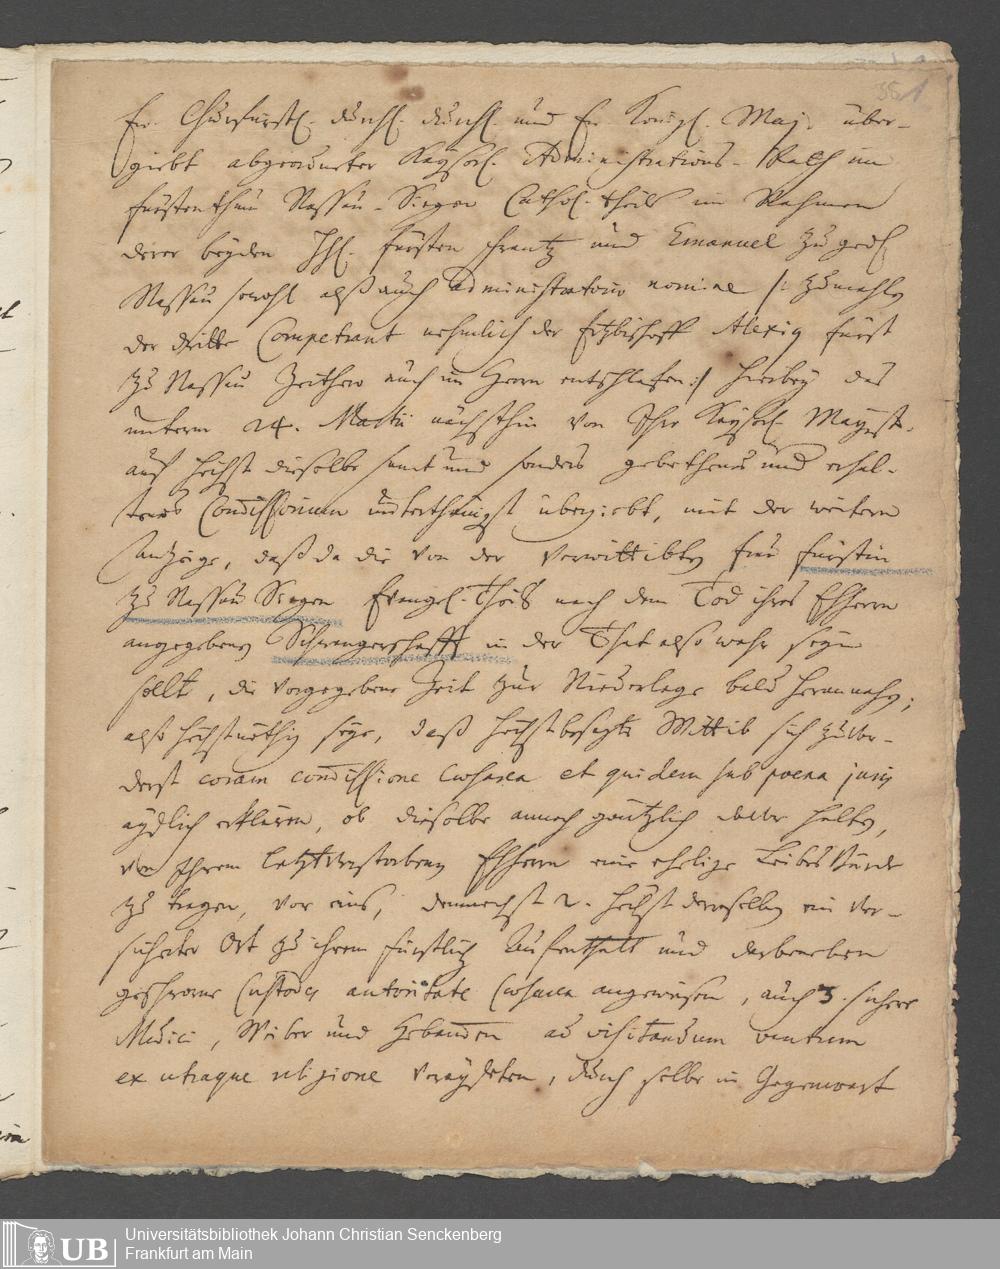 Er. Churfürstl. Durchl. Durchl. und Er. Königl. Maj. über-
giebt abgeordneter Kayserl. Administrations-Rath im
fürstenthum Nassau-Siegen Cathol. theils im Nahmen
derer beyden HH. fürsten Frantz und Emanuel zu gedl.
Nassau sowohl alß auch administratorio nomine /: zumahlen
der dritte Competent nehmlich der Ertzbischoff Alexis fürst
zu Nassau zeithero auch im Herrn entschlafen :/ hierbey das
unterm 24. Martii nächsthin von Ihro Kayserl. Mayest.
auf höchst dieselbe samt und sonders gebethenes und erhal-
tenes Commissorium unterthänigst übergiebt, mit der weitern
anzeige, daß da die von der verwittibten frau fürstin
zu Nassau Siegen Evangel. Theils nach dem Tod ihres Ehherrn
angegebene Schwangerschafft in der That also wahr seyn
sollte, die vorgegebene Zeit zur Niederlage bald herannahe;
also höchstnöthig seye, daß höchstbesagte Wittib sich zuvor-
derst coram commissione Caesarea et quidem sub poena juris
aydlich erklären, ob dieselbe annoch gäntzlich davor halte,
von Ihrem letztverstorbenen Ehherrn eine ehelige Leibes bürde
zu tragen, vor eins, demnechst 2. höchst derselben ein ver-
sicherter Ort zu ihrem fürstlichen Aufenthalt und darbeneben
geschworne Custodes autoritate Caesarea angewiesen, auch 3. sichere
Medici, Weiber und Hebammen ad visitandum ventrem
ex utraque religione veraydeten, durch selbe in Gegenwart
36
1
UB
Universitätsbibliothek Johann Christian Senckenberg
Frankfurt am Main